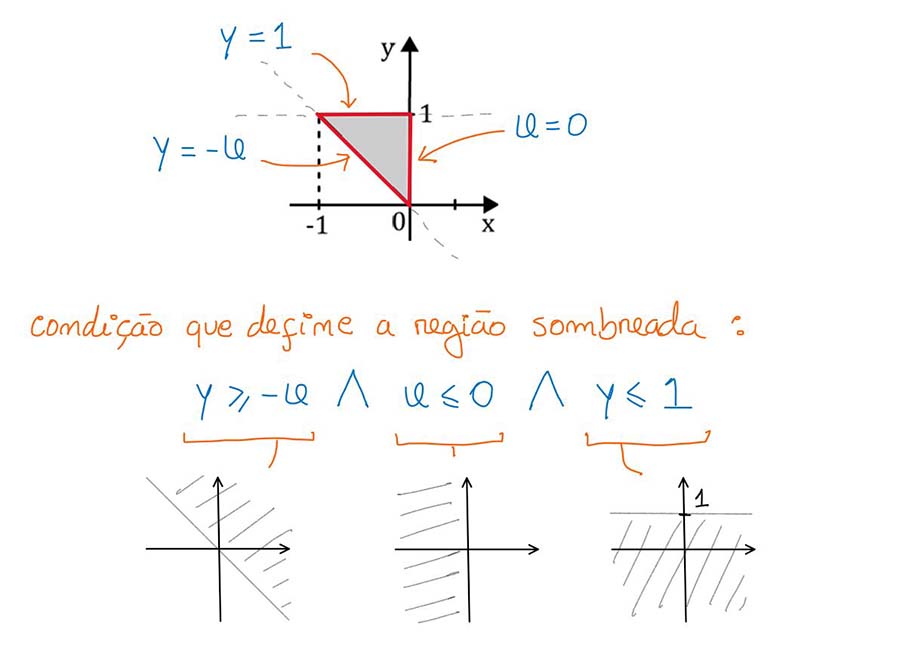 y = 1
y
1
x = 0
y = -x
-1
0
x
condição que define a região sombreada :
y ⩾ -x ∧ x ⩽ 0 ∧ y ⩽ 1
1